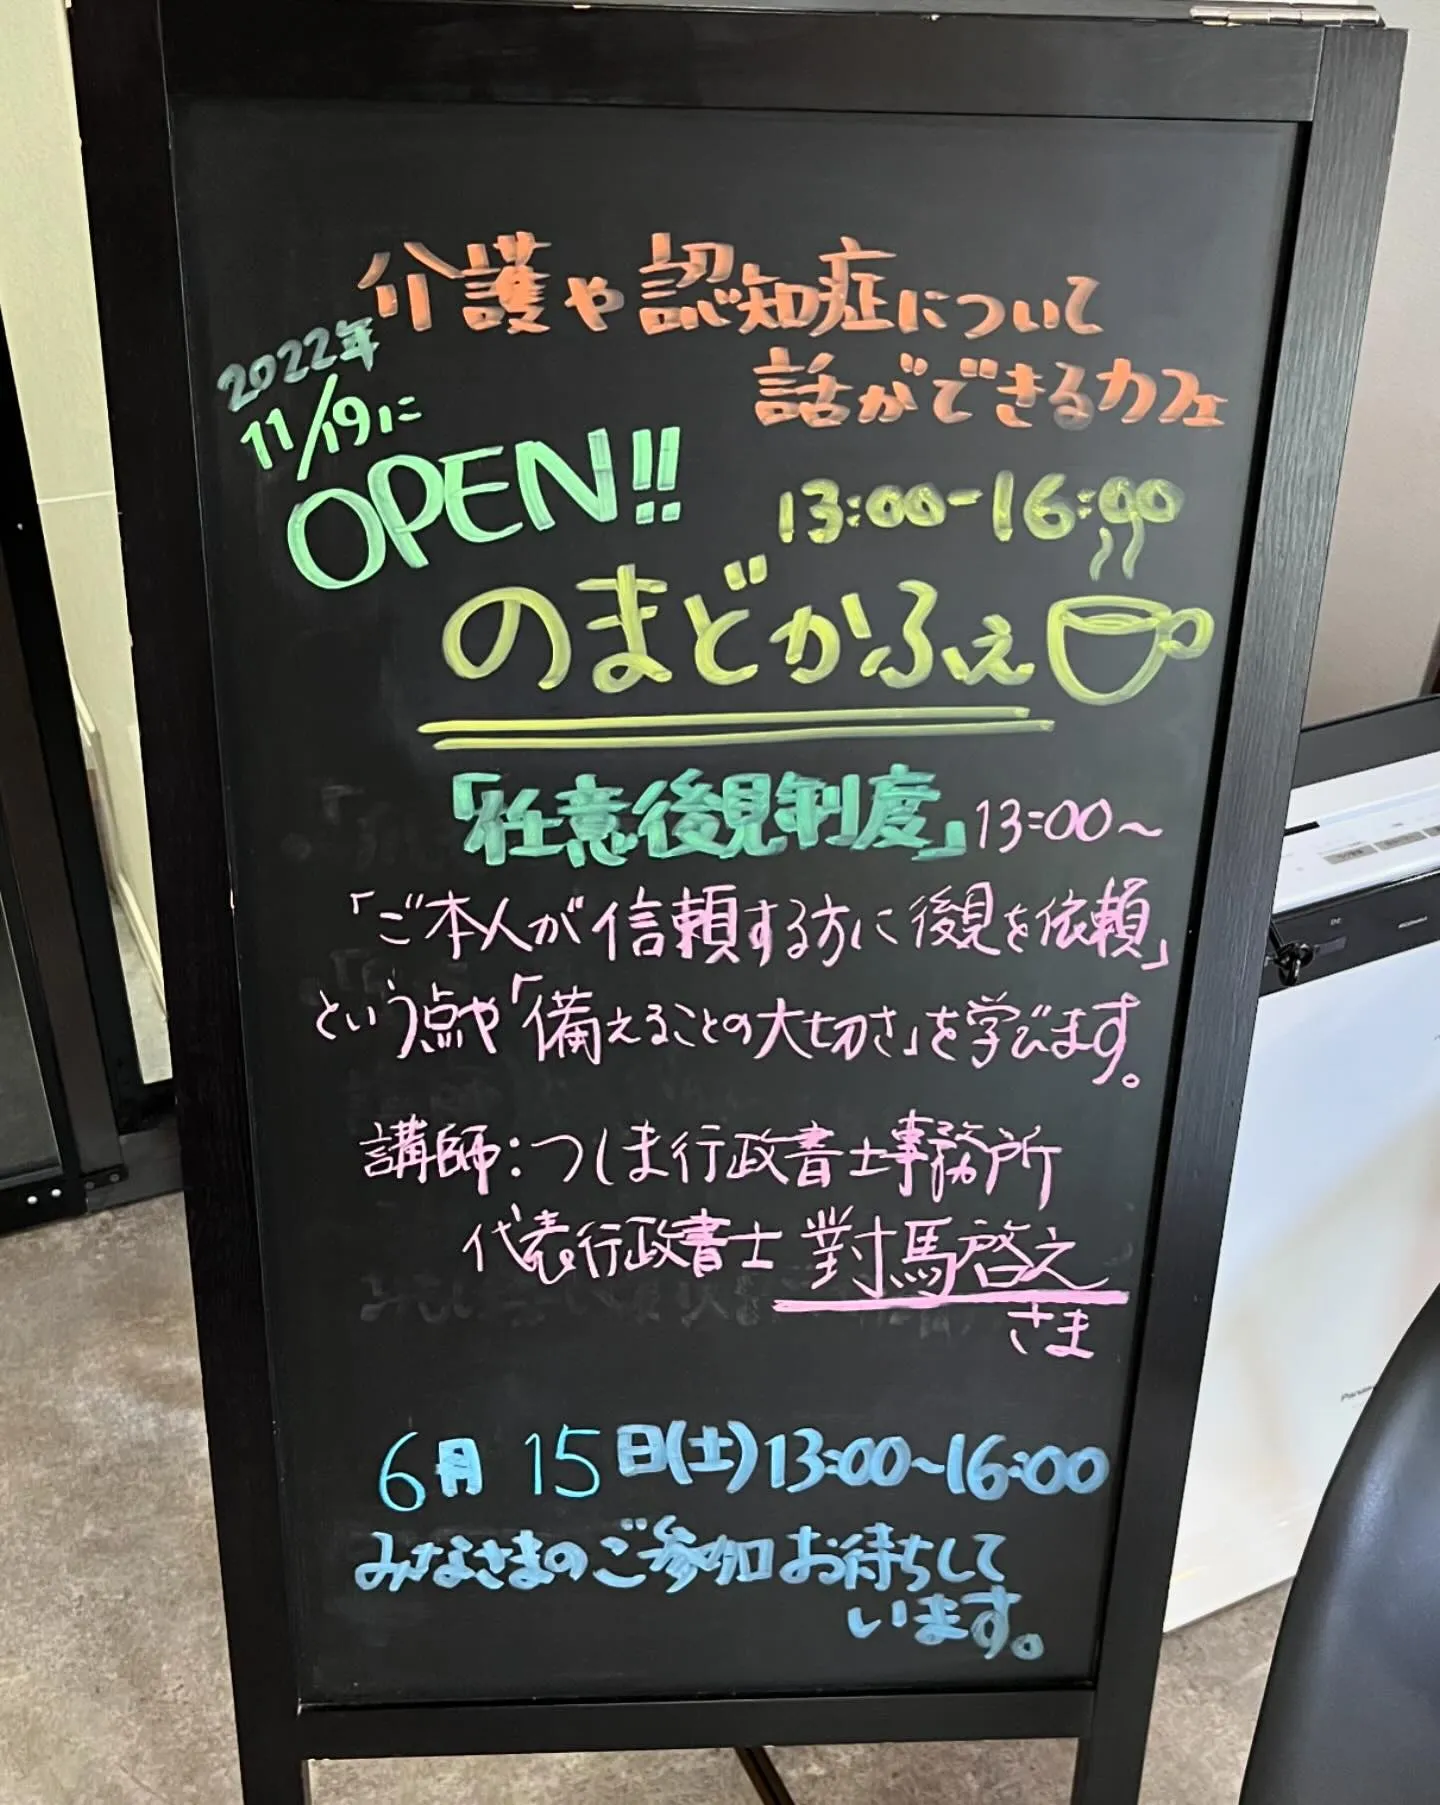 介護や認知症について
話ができるカフェ
2022年
11/19に
OPEN!!
13:00-16:00
のまどかふぇ
「任意後見制度」13:00〜
「ご本人が信頼する方に後見を依頼」
という点や「備えることの大切さ」を学びます。
講師:つしま行政書士事務所
代表行政書士 對馬啓之
さま
6月 15日(土)13:00〜16:00
みなさまのご参加お待ちして
います。